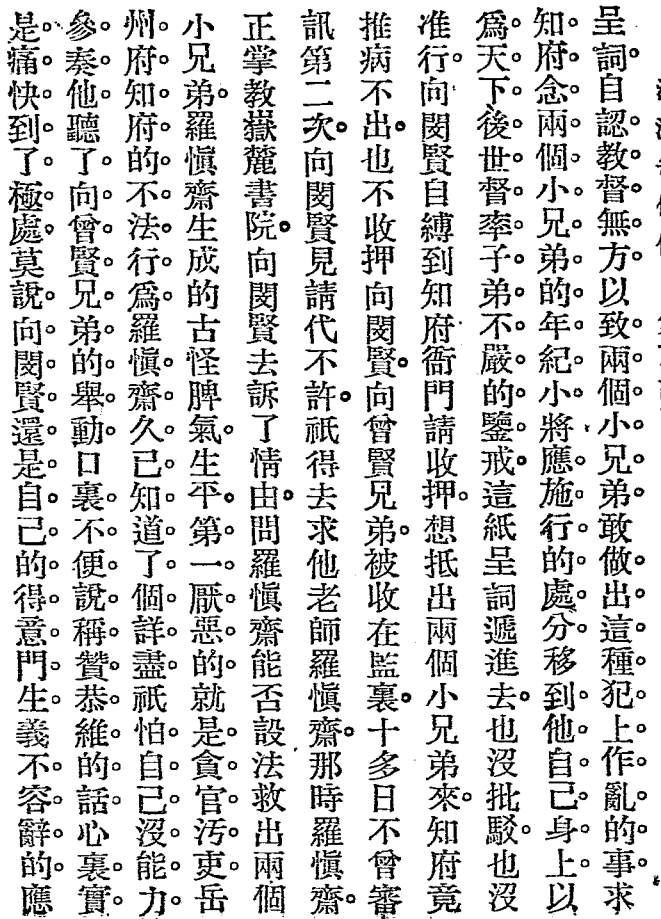 呈詞。自認教督無方。以致兩個小兄弟敢做出這種犯上作亂的事求
知府念兩個小兄弟的年紀小將應施行的處分移到他自己身上以
爲天下後世督率子弟不嚴的鑒戒這紙呈詞遞進去也沒批駁也沒
准行向閔賢自縛到知府衙門請收押。想抵出兩個小兄弟來。知府竟
推病不出。也不收押向閔賢。向曾賢兄弟。被收在監裏。十多日不曾審
訊第二次。向閔賢見請代不許。祇得去求他老師羅愼齋。那時羅愼齋。
正掌教嶽麓書院。向閔賢去訴了情由。問羅愼齋能否設法救出兩個
小兄弟。羅愼齋生成的古怪脾氣。生平。第一厭惡的就是貪官汚吏岳
州府知府的不法行爲羅愼齋久已知道了個詳盡祇怕自己沒能力。
參奏他聽了向曾賢兄弟的舉動口裏不便說稱贊恭維的話心裏實。
是痛快到了極處莫說向閔賢還是自己的得意門生義不容辭的應